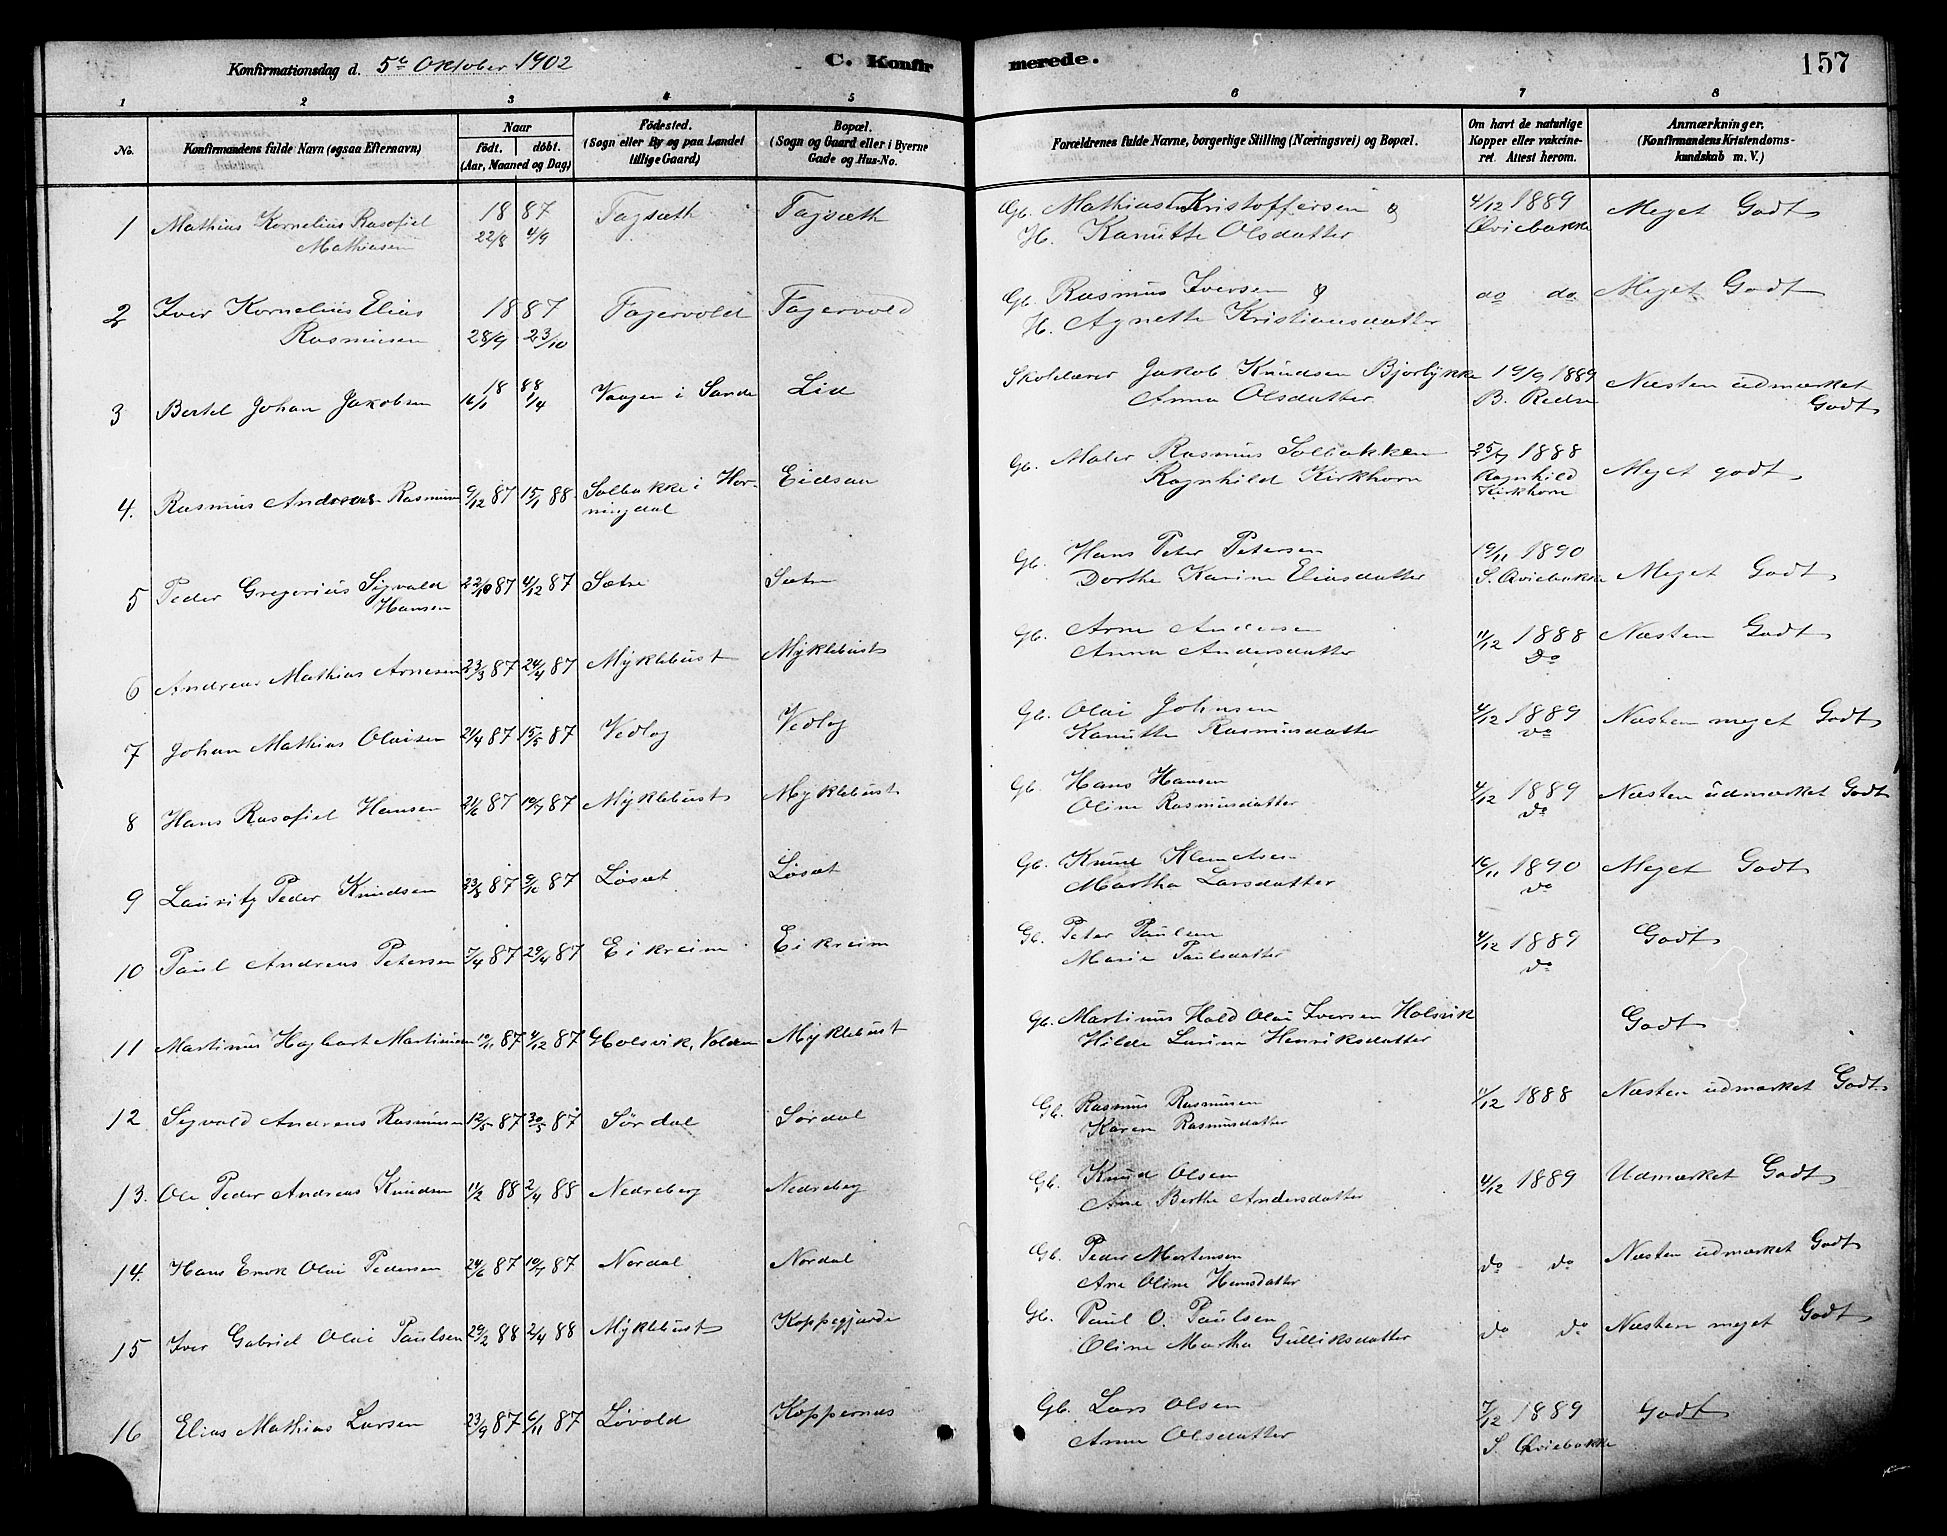 Konfirmationsdag d. 5te Oktober 1902 C. Konfir merede. 157
1 2 3 4 5 6 7 8
No. Konfirmandens fulde Navn (ogsaa Efternavn) Naar født. døbt. (Aar, Maaned og Dag) Fødested. (Sogn eller By og paa Landet tillige Gaard) Bopæl. (Sogn og Gaard eller i Byerne Gade og Hus-No. Forældrenes fulde Navne, borgerlige Stilling (Næringsvei) og Bopæl. Om havt de naturlige Kopper eller vakcineret. Attest herom. Anmærkninger. (Konfirmandens Kristendomskundskab m. V.)
1 Mathias Kornelius Rasofiel 18 87 Fagsæth Fagsæth Gb. Mathias Kristoffersen & 4/12 1889 Meget Godt
Mathiasen 22/8 4/9 H. Kanutte Olsdatter Qviebakke
2 Iver Kornelius Elias 18 87 Fagervold Fagervold Gb. Rasmus Iversen & do do Meget Godt
Rasmusen 28/9 23/10 H. Agnette Kristiansdatter
3 Bertel Johan Jakobsen 18 88 16/1 2/4 Vaagen i Sande Lid Skolelærer Jakob Knudsen Bjørlykke 19/9 1889 Næsten udmærket
Anna Olsdatter B. Redse Godt
4. Rasmus Andreas Rasmusen 9/12 87 15/1 88 Solbakke i Hor- Eidsaa Gb. Maler Rasmus Solbakken 25/7 1888 Meget godt
ningdal Ragnhild Kirkhorn Ragnhild
Kirkhorn
5 Peder Gregerius Sigvald 22/10 87 4/12 87 Sætre Sætre Gb. Hans Peter Petersen 19/11 1890 Meget Godt
Hansen Dorthe Karine Eliasdatter S. Qviebakke
6 Andreas Mathias Arnesen 23/3 87 24/4 87 Myklebust Myklebust Gb. Arne Andersen 11/12 1888 Næsten Godt
Anna Andersdatter Do
7 Johan Mathias Olaisen 21/4 87 15/5 87 Vedlog Vedlog Gb. Olai Johnsen 4/12 1889 Næsten meget Godt
Kanutte Rasmusdatter do
8 Hans Rasofiel Hansen 21/6 87 19/7 87 Myklebust Myklebust Gb. Hans Hansen 4/12 1889 Næsten udmærket Godt
Oline Rasmusdatter do
9 Lauritz Peder Knudsen 23/8 87 9/10 87 Løsæt Løsæt Gb. Knud Klemetsen 16/11 1890 Meget Godt
Martha Larsdatter do
10 Paul Andreas Petersen 7/4 87 29/4 87 Eikreim Eikreim Gb. Peter Paulsen 4/12 1889 Godt
Marie Paulsdatter do
11 Martinus Hagbart Martinusen 10/11 87 4/12 87 Holsvik, Volden Myklebust Gb. Martinus Hald Olai Iversen Holsvik Godt
Hilde Larine Henriksdatter
12 Sigvald Andreas Rasmusen 12/5 87 30/5 87 Sørdal Sørdal Gb. Rasmus Rasmusen 11/12 1888 Næsten udmærket Godt
Karen Rasmusdatter
13. Ole Peder Andreas Knudsen 14/2 88 2/4 88 Nedreberg Nedreberg Gb. Knud Olsen 4/12 1889 Udmærket Godt
Ane Berthe Andersdatter
14. Hans Enok Olai Pedersen 24/6 87 10/7 87 Nordal Nordal Gb. Peder Mortensen do do Næsten udmærket Godt
Ane Oline Hansdatter
15 Iver Gabriel Olai Paulsen 29/2 88 2/4 88 Myklebust Koppegjærde Gb. Paul O. Paulsen do do Næsten meget Godt
Oline Martha Gulliksdatter
16 Elias Mathias Larsen 23/9 87 6/11 87 Løvold Koppernæs Gb. Lars Olsen 7/12 1889 Godt
Anne Olsdatter S. Qviebakke